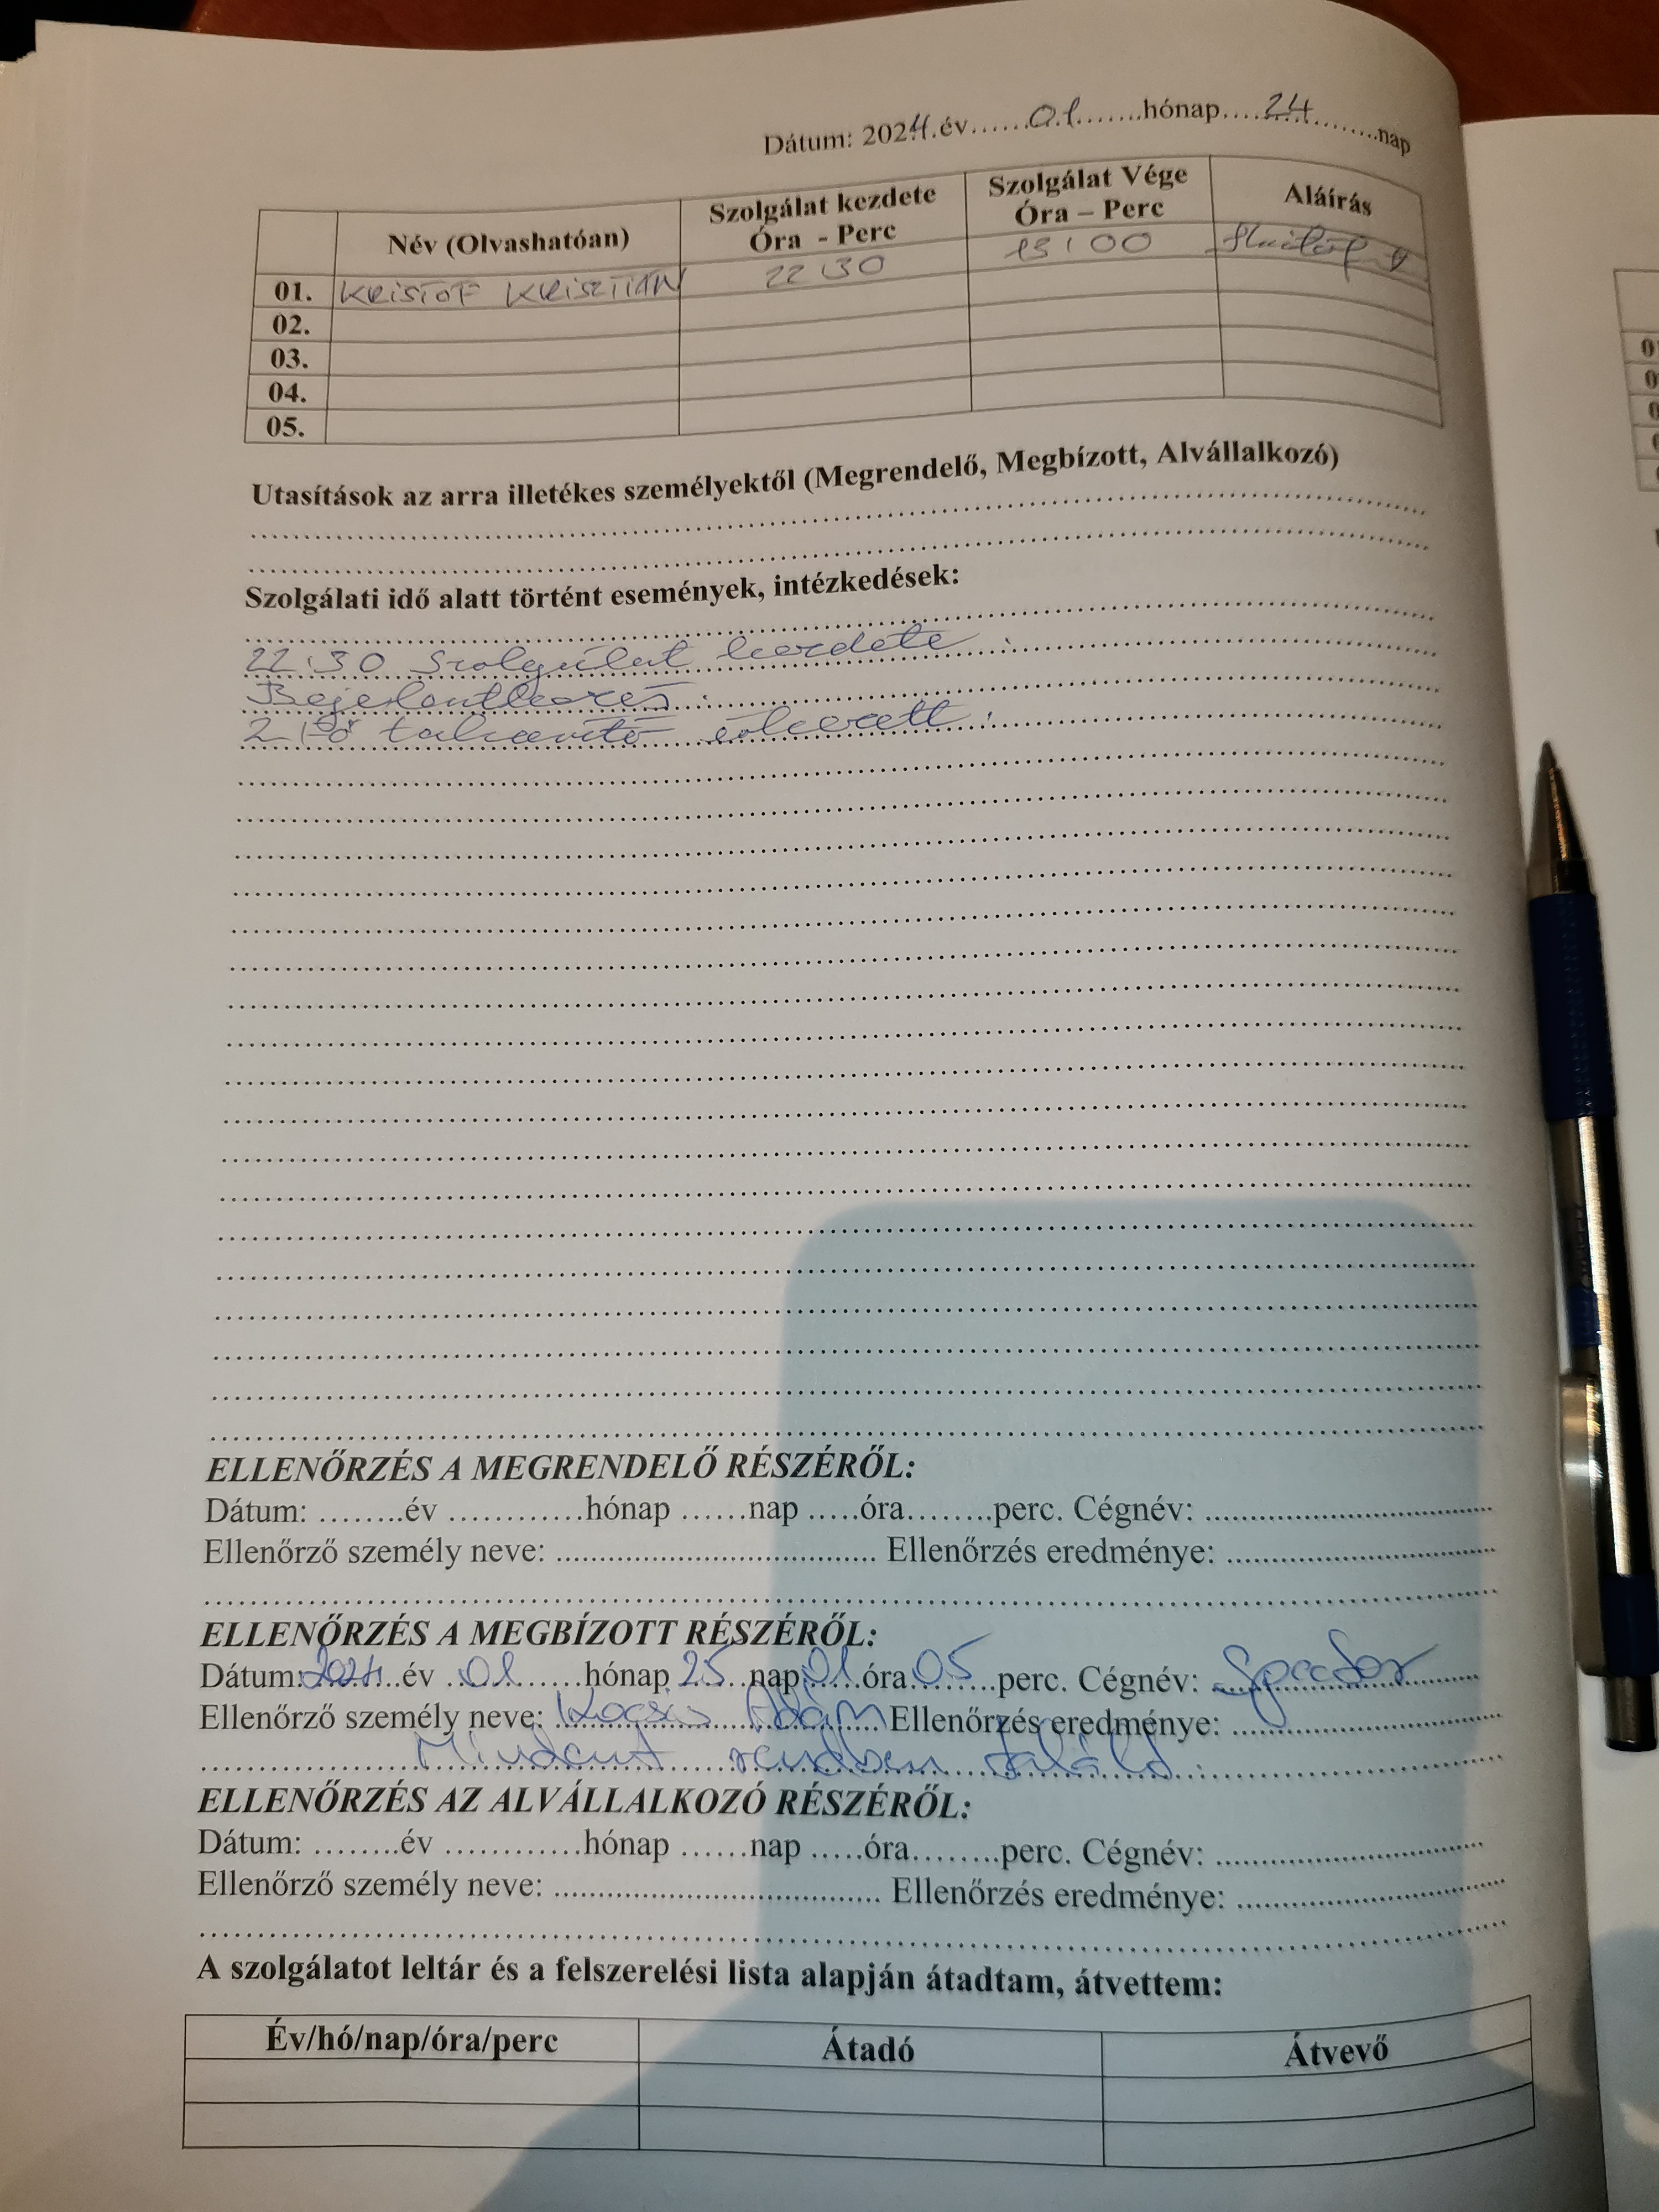 Dátum: 2024.év......01.......hónap....24..........nap
Név (Olvashatóan) Szolgálat kezdete Óra - Perc Szolgálat Vége Óra – Perc Aláírás
01. KRISTÓF KRISZTIÁN 22:30 13:00
02.
03.
04.
05.
Utasítások az arra illetékes személyektől (Megrendelő, Megbízott, Alvállalkozó)
Szolgálati idő alatt történt események, intézkedések:
22:30 Szolgálat kezdete
Bejelentkezés
2 fő takarító érkezett
ELLENŐRZÉS A MEGRENDELŐ RÉSZÉRŐL:
Dátum: ........év ............hónap ......nap .....óra........perc. Cégnév: ..............................
Ellenőrző személy neve: .................................... Ellenőrzés eredménye: ..............................
ELLENŐRZÉS A MEGBÍZOTT RÉSZÉRŐL:
Dátum: 2024 év 01 hónap 25 nap 01 óra 05 perc. Cégnév:
Ellenőrző személy neve: Kocsis Ádám Ellenőrzés eredménye:
Mindent rendben talált
ELLENŐRZÉS AZ ALVÁLLALKOZÓ RÉSZÉRŐL:
Dátum: ........év ............hónap ......nap .....óra........perc. Cégnév: ..............................
Ellenőrző személy neve: .................................... Ellenőrzés eredménye: ..............................
A szolgálatot leltár és a felszerelési lista alapján átadtam, átvettem:
Év/hó/nap/óra/perc Átadó Átvevő